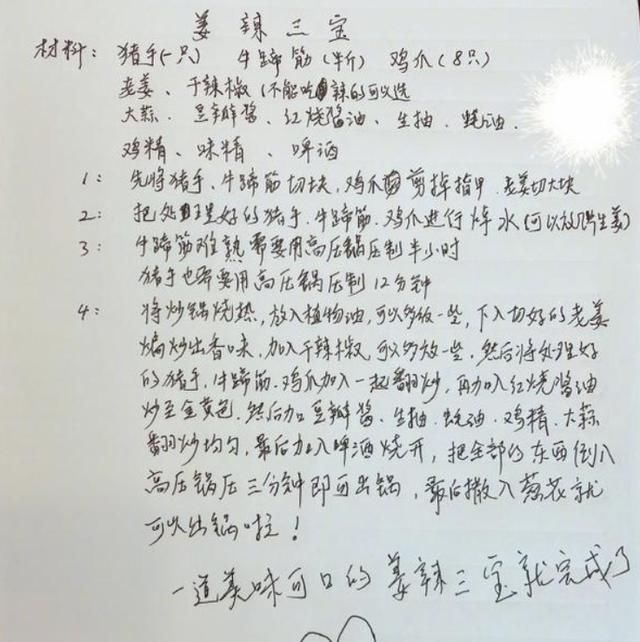 姜辣三宝
材料：猪手(一只) 牛蹄筋(半斤) 鸡爪(8只)
老姜、干辣椒(不能吃辣的可以选
大蒜、豆瓣酱、红烧酱油、生抽、蚝油、
鸡精、味精、啤酒
1：先将猪手、牛蹄筋切块，鸡爪剪掉指甲、老姜切大块
2：把处理好的猪手、牛蹄筋、鸡爪进行焯水(可以放些生姜)
3：牛蹄筋难熟需要用高压锅压制半小时
猪手也需要用高压锅压制12分钟
4：将炒锅烧热，放入植物油，可以多放一些，下入切好的老姜
煸炒出香味，加入干辣椒，可以多放一些，然后将处理好
的猪手、牛蹄筋、鸡爪加入一起翻炒，再加入红烧酱油
炒至金黄色，然后加豆瓣酱、生抽、蚝油、鸡精、大蒜
翻炒均匀，最后加入啤酒烧开，把全部的东西倒入
高压锅压三分钟即可出锅，最后撒入葱花就
可以出锅啦！
一道美味可口的姜辣三宝就完成了